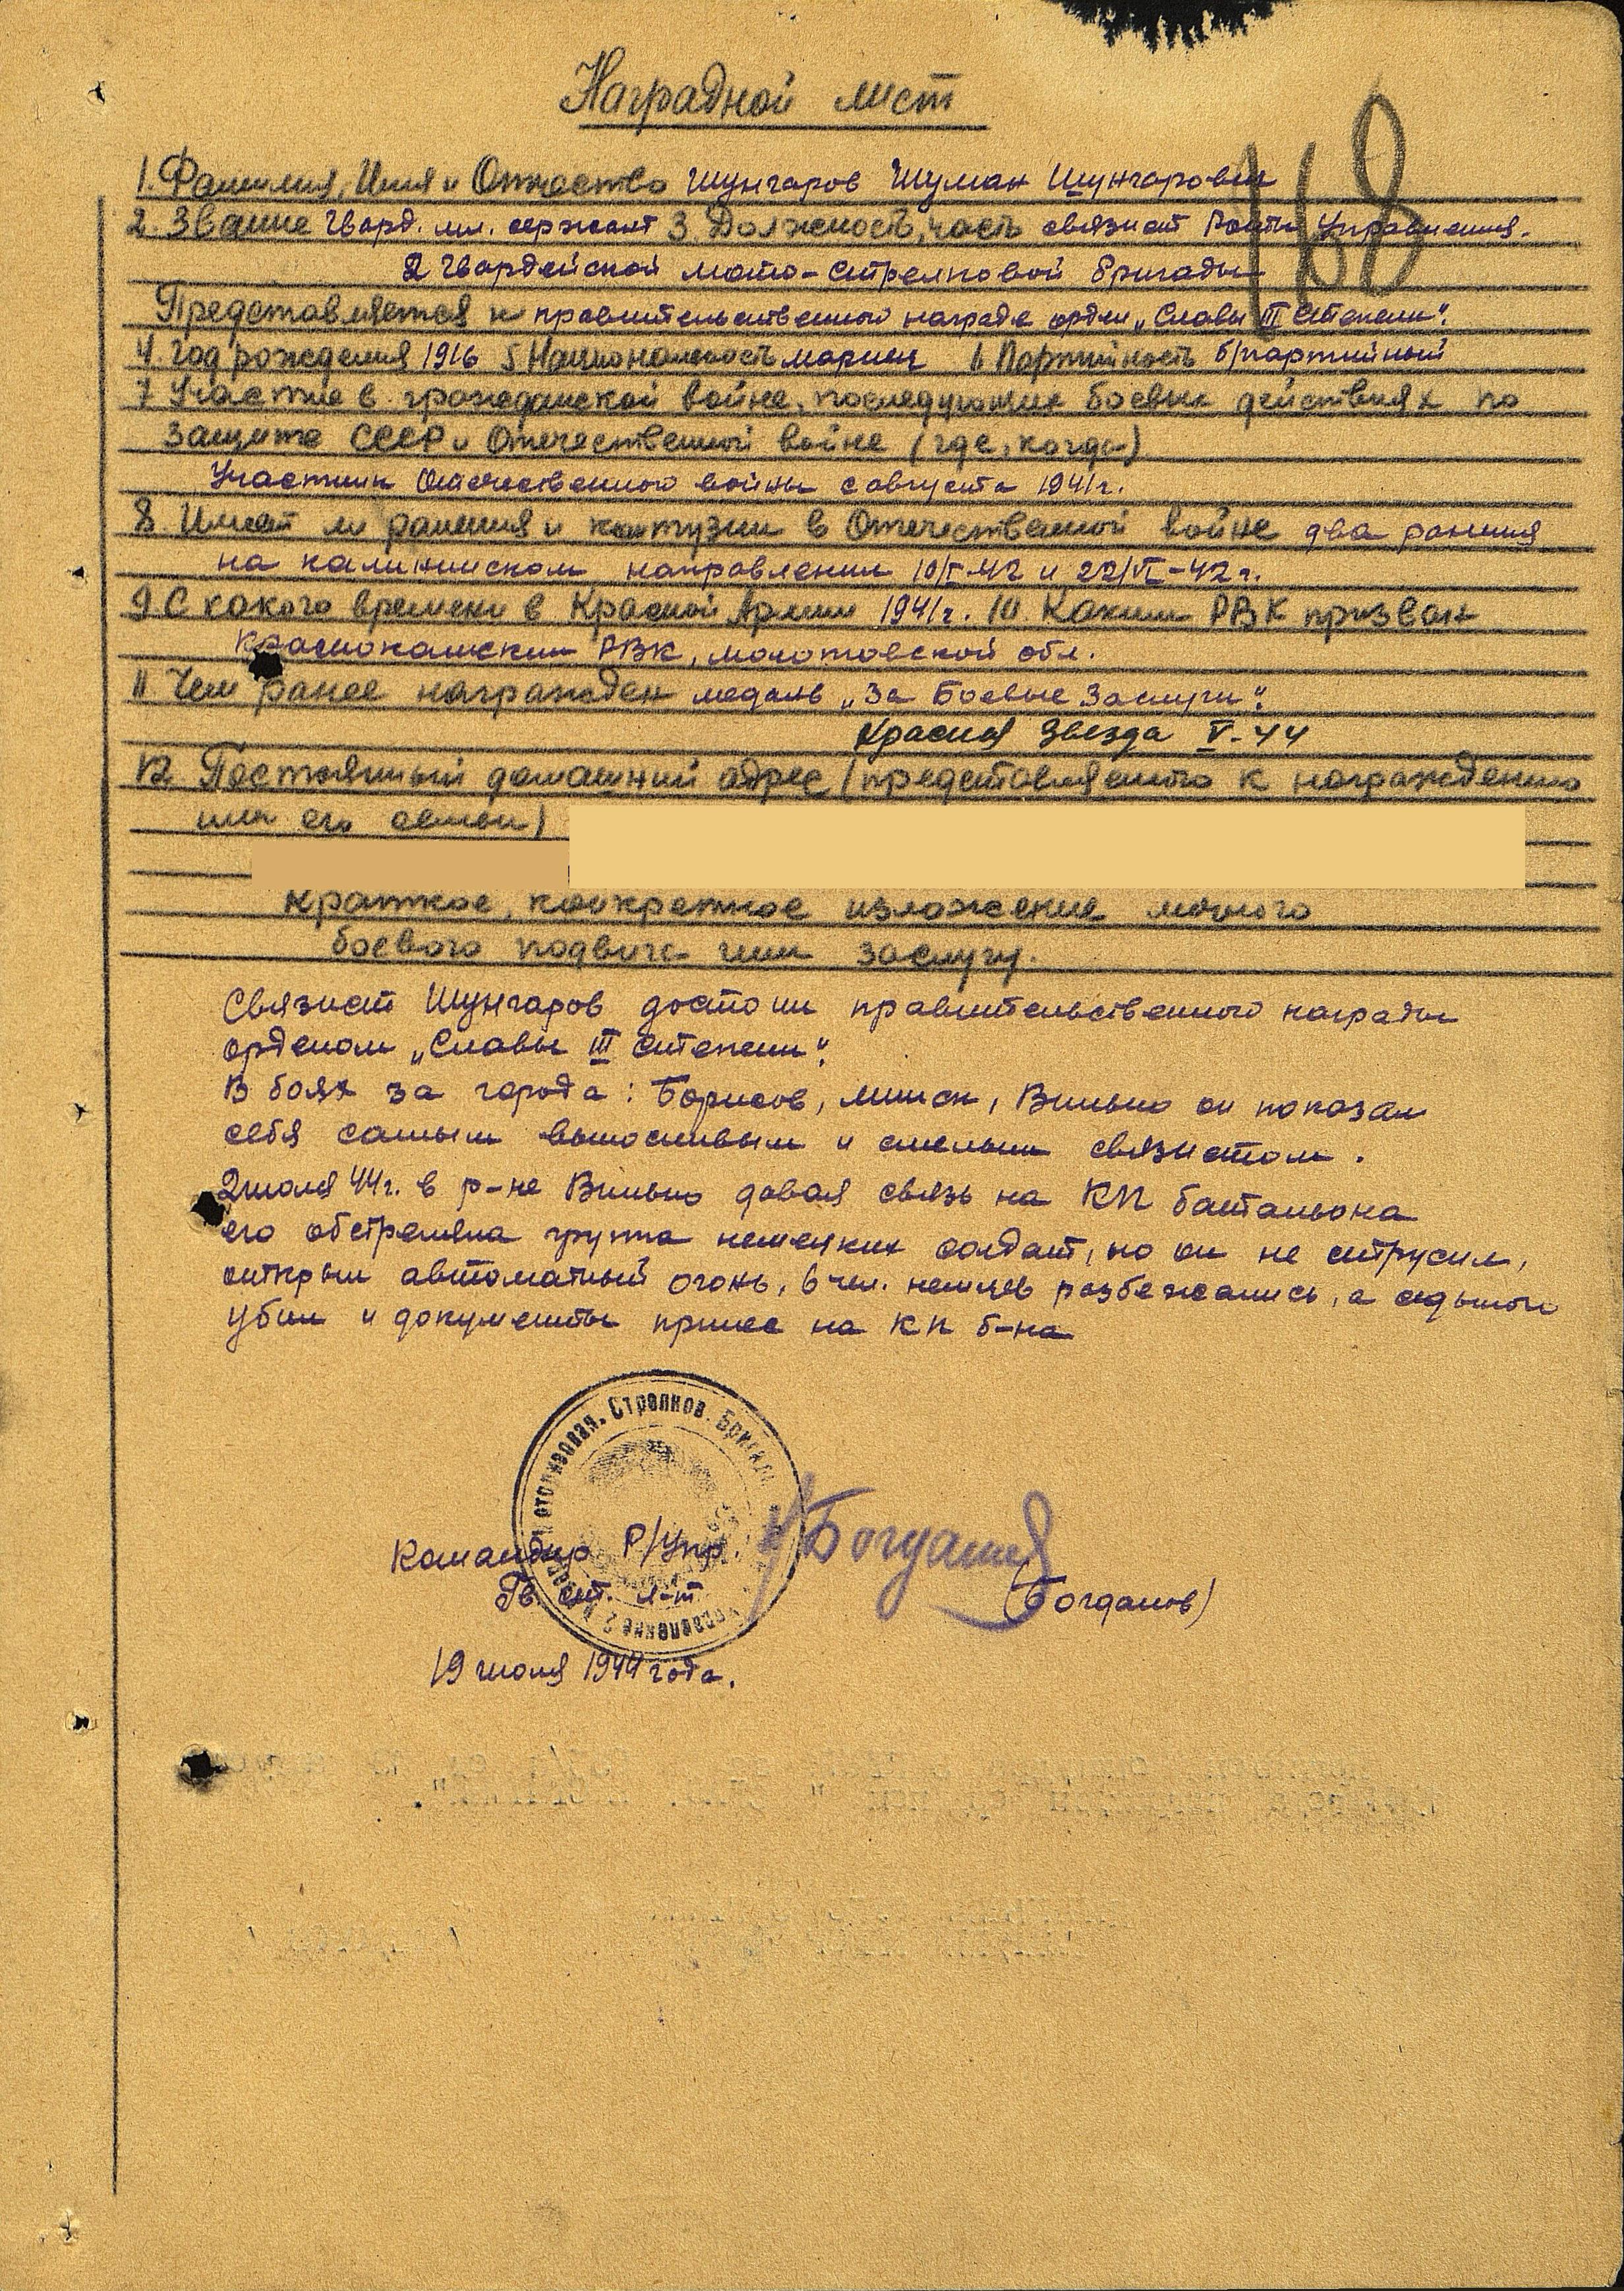 Наградной лист
168
1. Фамилия, Имя и Отчество Шунгаров Шуман Шунгарович
2. Звание Гвард. мл. сержант 3. Должность, часть связист Роты Управления.
2 Гвардейской мото-стрелковой бригады
Представляется к правительственной награде орден „Славы III степени“.
4. Год рождения 1916 5 Национальность мариец 6 Партийность б/партийный
7 Участие в гражданской войне, последующих боевых действиях по
защите СССР и Отечественной войне (где, когда)
Участник Отечественной войны с августа 1941 г.
8. Имеет ли ранения и контузии в Отечественной войне два ранения
на калининском направлении 10/I-42 и 22/VI-42 г.
9 С какого времени в Красной Армии 1941 г. 10. Каким РВК призван
Краснокамским РВК, Молотовской обл.
11. Чем ранее награжден медаль „За Боевые Заслуги“.
Красная Звезда V-44
12. Постоянный домашний адрес (представляемого к награждению
или его семьи)
Краткое, конкретное изложение личного
боевого подвига или заслуги.
Связист Шунгаров достоин правительственной награды
орденом „Славы III степени“.
В боях за города: Борисов, Минск, Вильно он показал
себя самым выносливым и смелым связистом.
2 июля 44 г. в р-не Вильно давая связь на КП батальона
его обстреляла группа немецких солдат, но он не струсил,
открыл автоматный огонь, 6 чел. немцев разбежались, а седьмого
убил и документы принес на КП б-на
Стрелков. Бригада
Управление 2
Командир Р/Упр.
Гв. ст. л-т
Богданов
(Богданов)
19 июля 1944 года.